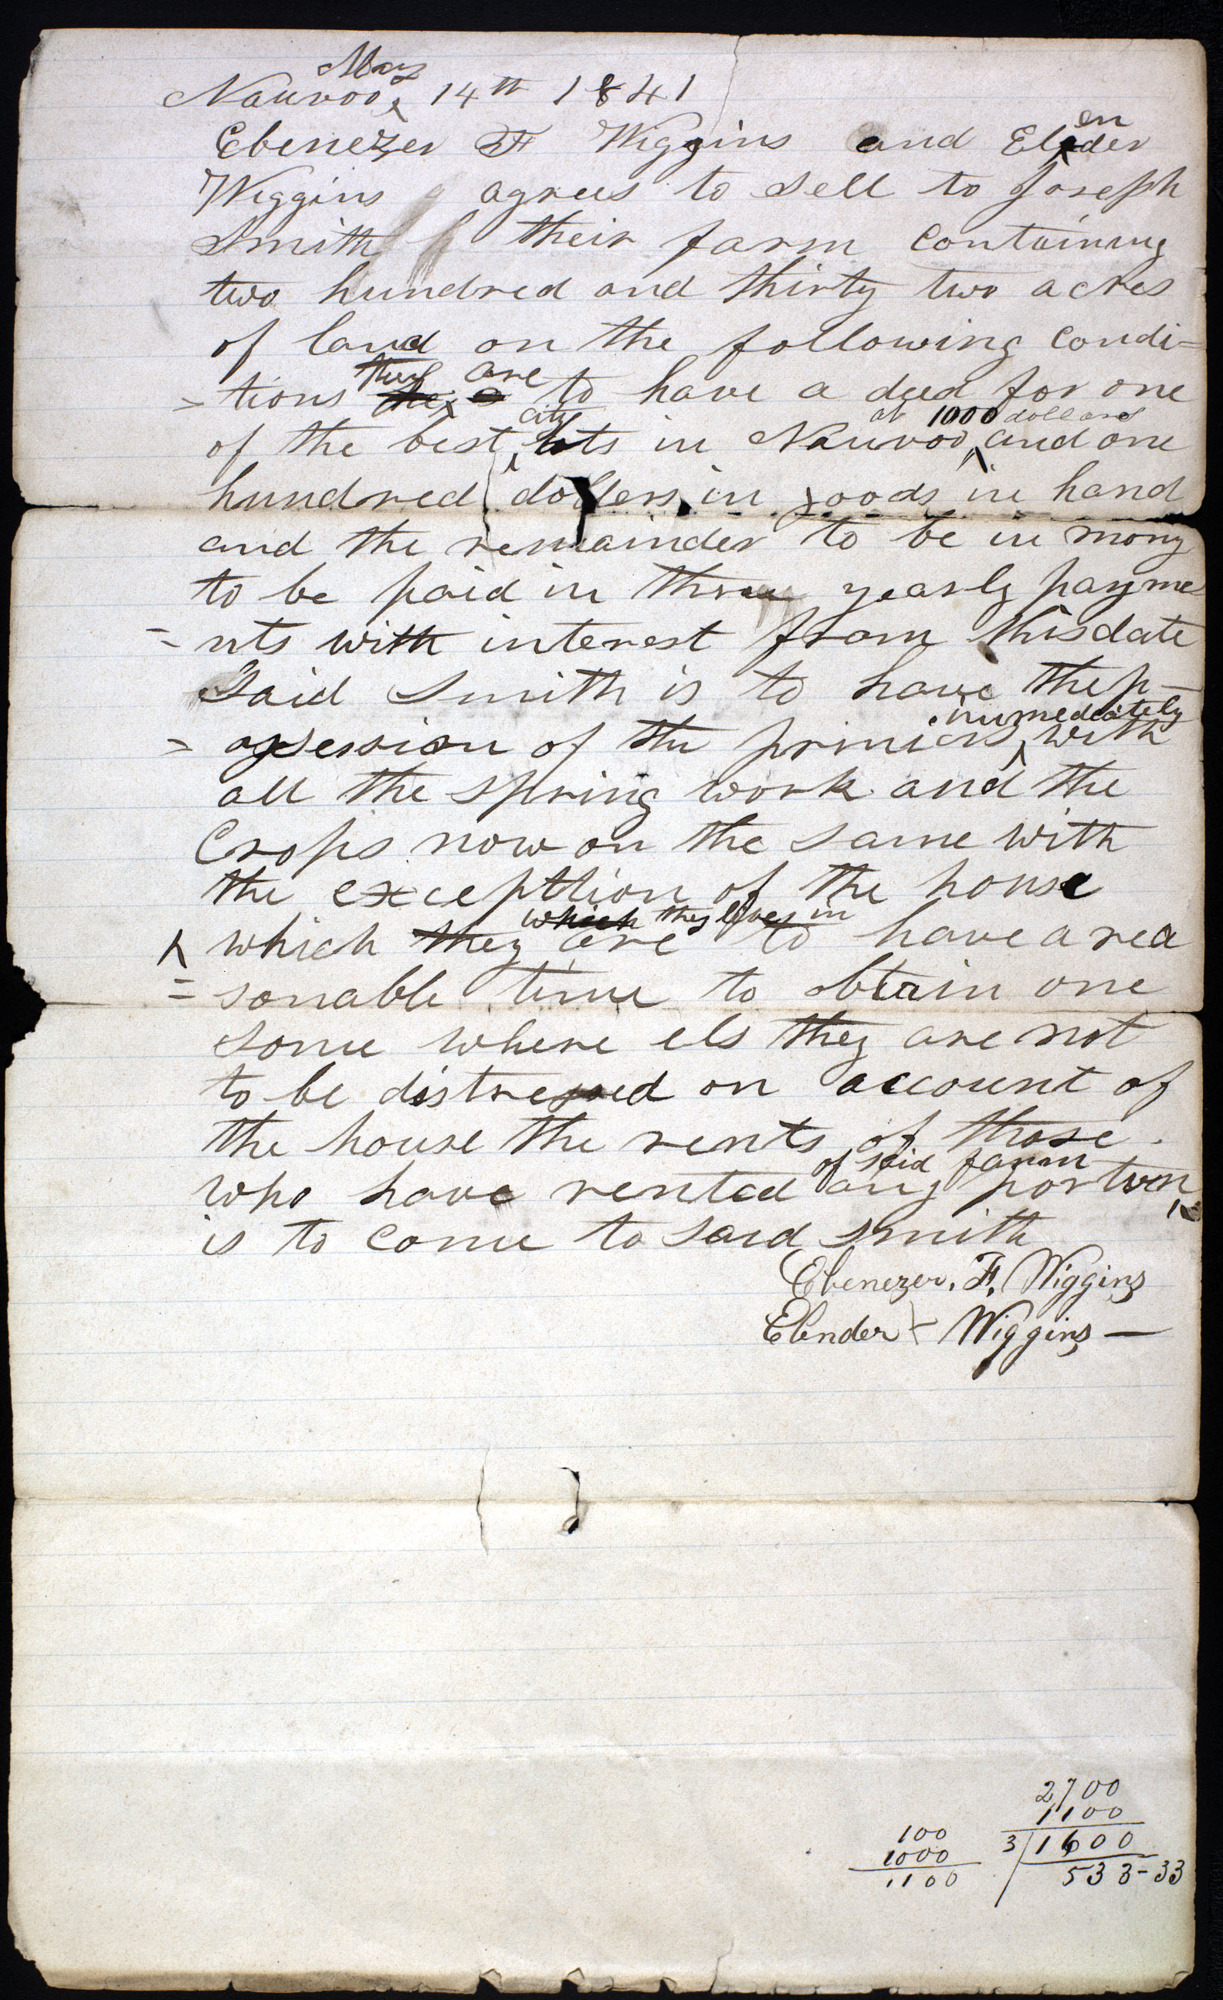 Nauvoo May 14th 1841
Ebenezer F Wiggins and Elender
Wiggins agrees to sell to Joseph
Smith their farm containing
two hundred and thirty two acres
of land on the following condi=
=tions they are to have a deed for one
of the best city lots in Nauvoo at 1000 dollars and one
hundred dollers in goods in hand
and the remainder to be in mony
to be paid in three yearly payme
=nts with interest from this date
Said Smith is to have the p-
=ossession of the primices immediately with
all the spring work and the
Crops now on the same with
the exception of the house
which they lives in are to have a rea
=sonable time to obtain one
some where els they are not
to be distressed on account of
the house the rents of those
who have rented any portion of said farm
is to come to said Smith
Ebenezer. F. Wiggins
Elender Wiggins —
2700
1100
3/1600
533-33
100
1000
1100